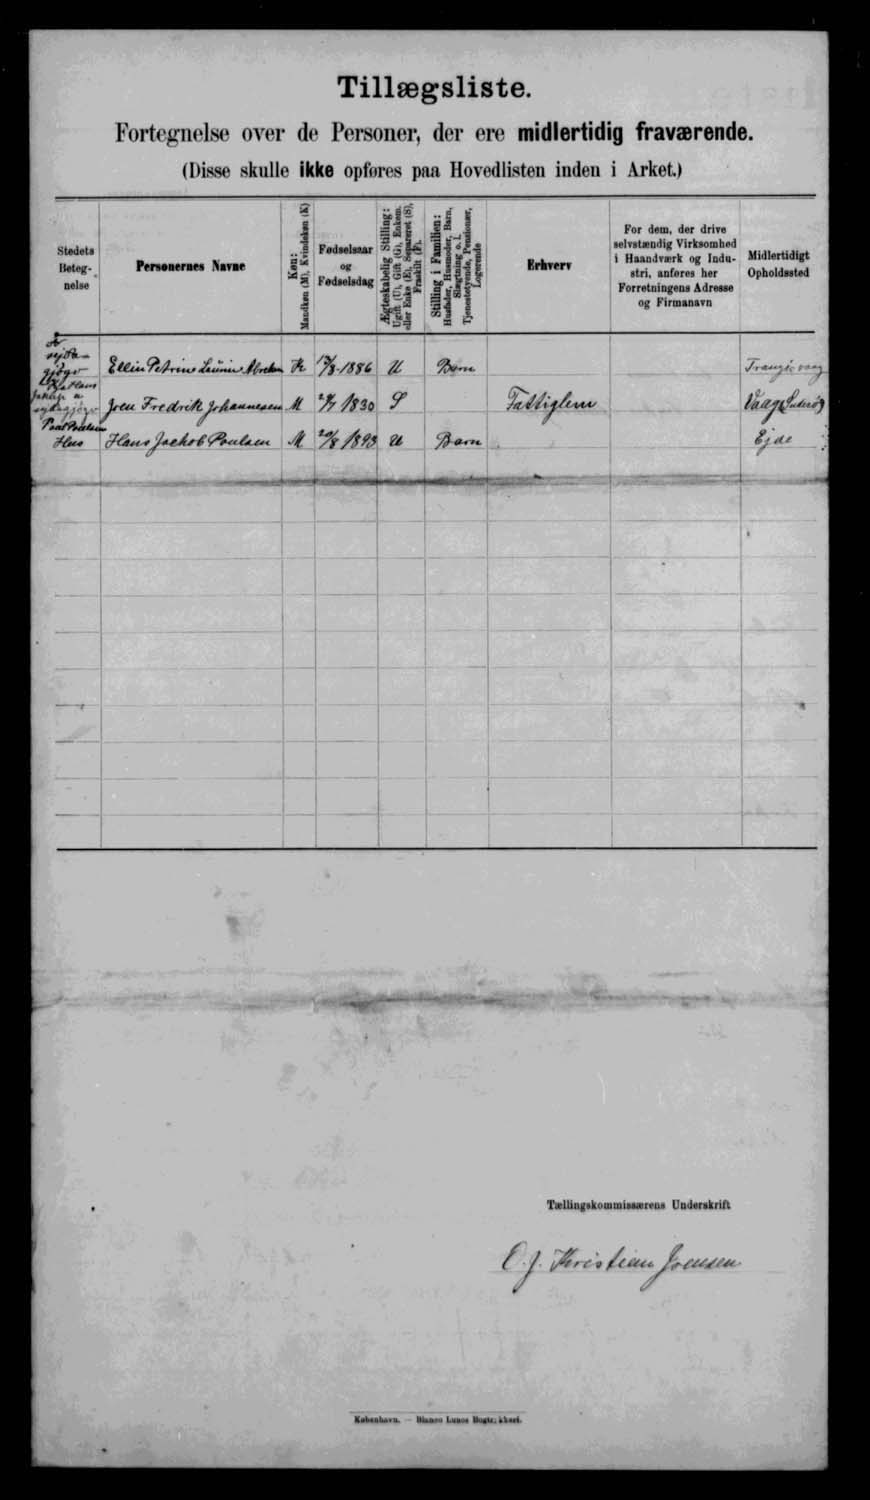 Tillægsliste.
Fortegnelse over de Personer, der ere midlertidig fraværende.
(Disse skulle ikke opføres paa Hovedlisten inden i Arket.)
Stedets
Beteg-
nelse
Personernes Navne
Køn:
Mandkøn (M), Kvindekøn (K)
Fødselsaar
og
Fødselsdag
Ægteskabelig Stilling:
Ugift (U), Gift (G), Enkem.
eller Enke (E), Separeret (S),
Fraskilt (F).
Stilling i Familien:
Husfader, Husmoder, Barn,
Slægtning o. l.
Tjenestetyende, Pensionær,
Logerende
Erhverv
For dem, der drive
selvstændig Virksomhed
i Haandværk og Indu-
stri, anføres her
Forretningens Adresse
og Firmanavn
Midlertidigt
Opholdssted
Ellin Petrine Laurine K /8-1886 U Barn
Joen Fredrik Johannesen M 1830 S Fattiglem Vaag Suderø
Poul Poulsen
Hus Hans Jachob Poulsen M 20/8 1893 U Barn Ejde
Tællingskommissærens Underskrift
O. J. Kristian Joensen
København. — Bianco Lunos Bogtrykkeri.